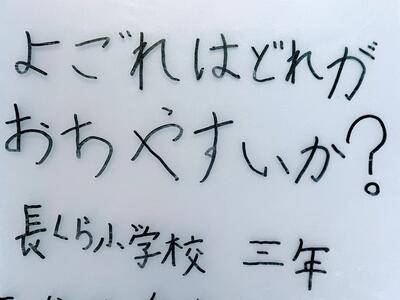 よごれはどれが
おちやすいか?
長くら小学校 三年